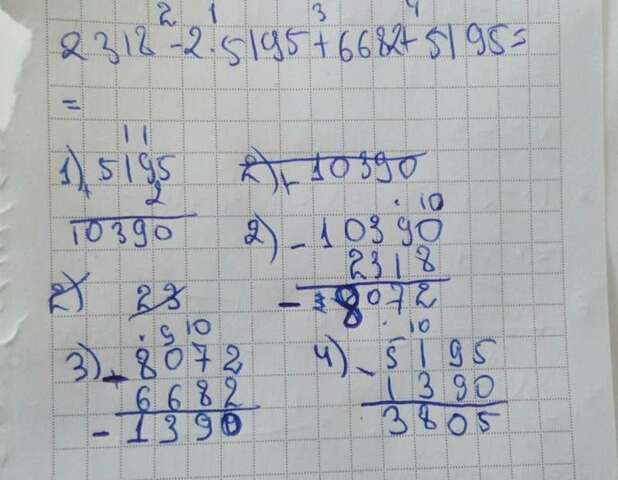 2 1 3 4
2318 - 2 · 5195 + 6682 + 5195 =
=
1 1
1) 5195 2) - 10390
+ 2 · 10
10390 2) - 10390
2318
2) 23 - 8072
· 9 10 · 10
3) - 8072 4) - 5195
6682 1390
- 1390 3805